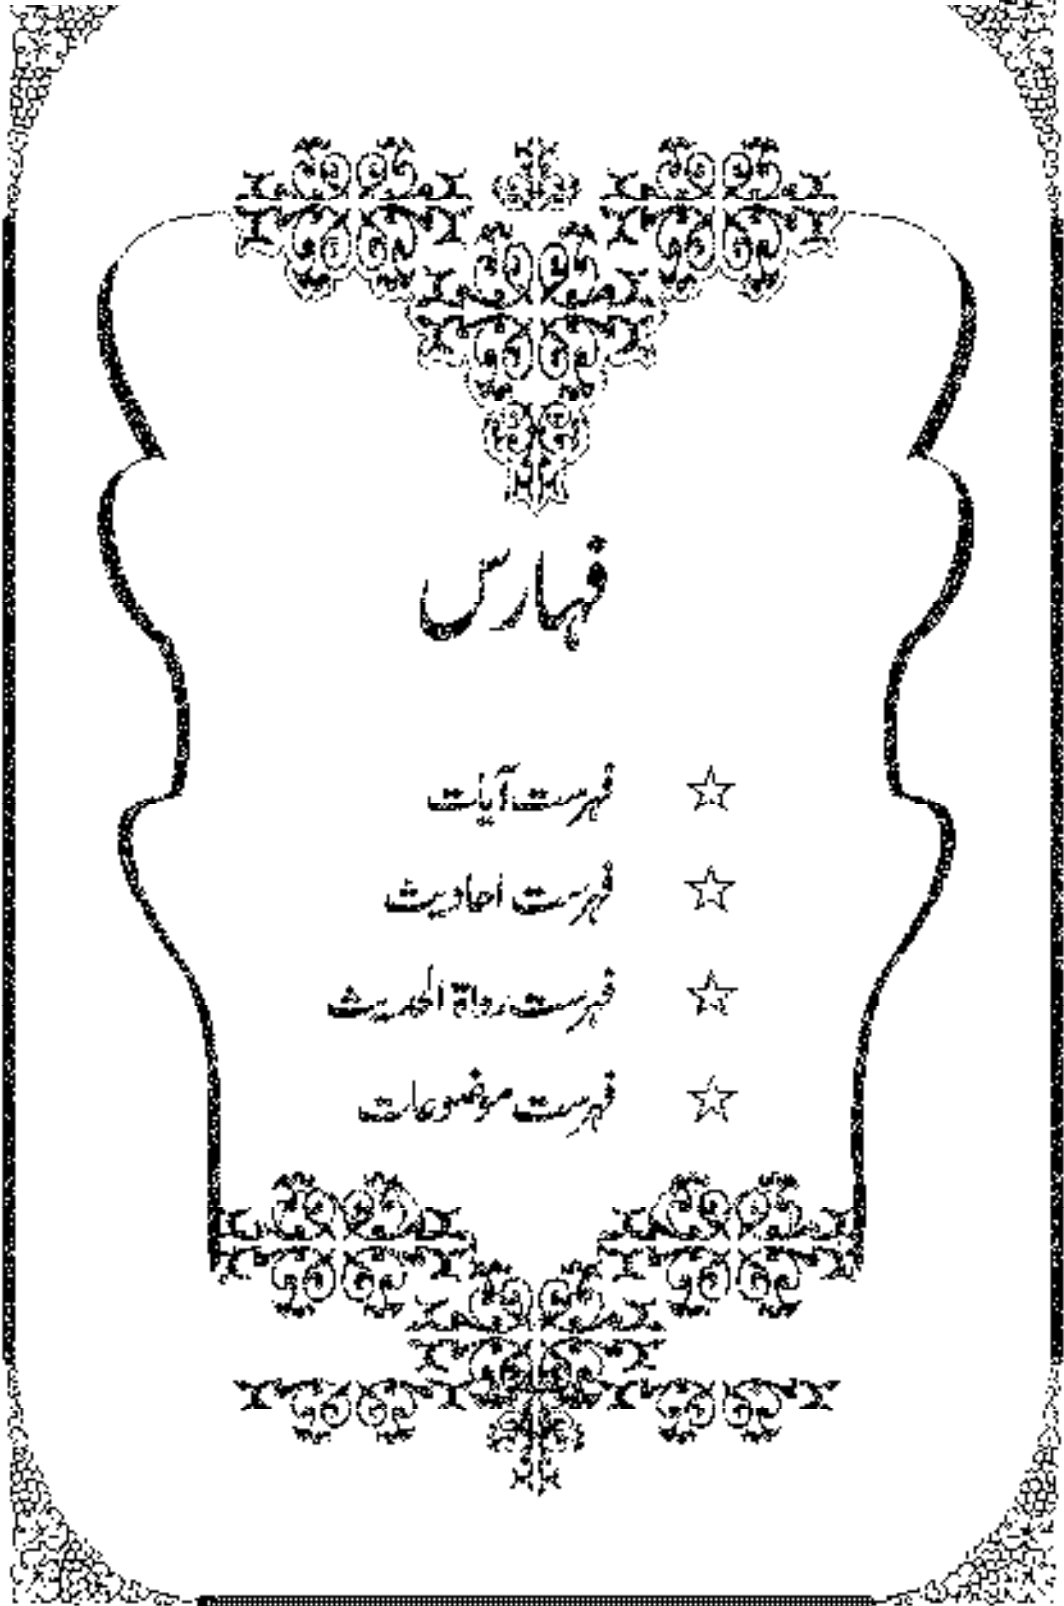 فہارس
☆ فہرست آیات
☆ فہرست احادیث
☆ فہرست رواۃ الحدیث
☆ فہرست موضوعات